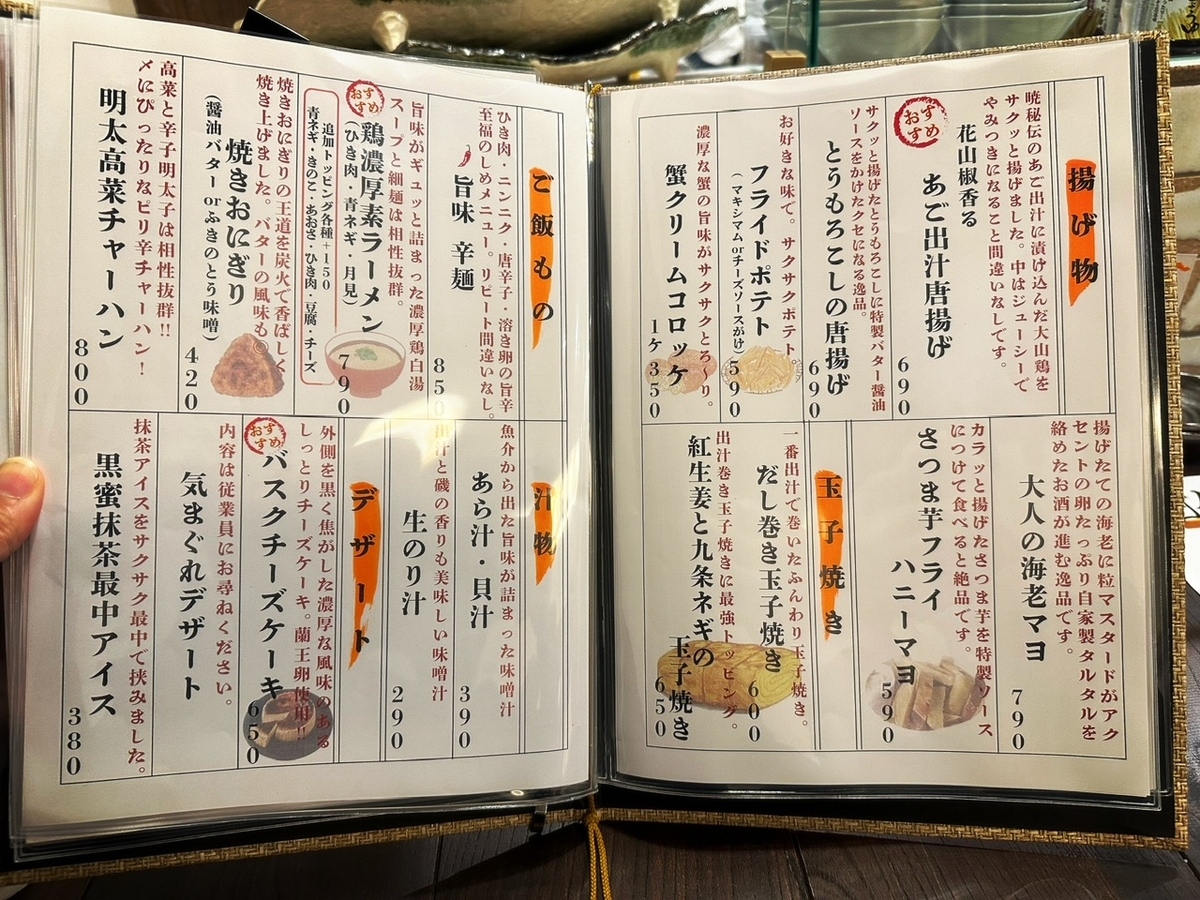 揚げ物
暁秘伝のあご出汁に漬け込んだ大山鶏を
サクッと揚げました。中はジューシーで
やみつきになること間違いなしです。
おすすめ
花山椒香る
あご出汁唐揚げ
690
サクッと揚げたとうもろこしに特製バター醤油
ソースをかけたクセになる逸品。
とうもろこしの唐揚げ
690
お好きな味で。サクサクポテト。
フライドポテト
(マキシマムorチーズソースがけ)
590
濃厚な蟹の旨味がサクサクとろ〜り。
蟹クリームコロッケ
1ケ350
揚げたての海老に粒マスタードがアク
セントの卵たっぷり自家製タルタルを
絡めたお酒が進む逸品です。
大人の海老マヨ
790
カラッと揚げたさつま芋を特製ソース
につけて食べると絶品です。
さつま芋フライ
ハニーマヨ
590
玉子焼き
一番出汁で巻いたふんわり玉子焼き。
だし巻き玉子焼き
600
出汁巻き玉子焼きに最強トッピング。
紅生姜と九条ネギの
玉子焼き
650
ご飯もの
ひき肉・ニンニク・唐辛子・溶き卵の旨辛
至福のしめメニュー。リピート間違いなし。
旨味 辛麺
850
旨味がギュッと詰まった濃厚鶏白湯
スープと細麺は相性抜群。
おすすめ
鶏濃厚素ラーメン
(ひき肉・青ネギ・月見)
790
追加トッピング各種+150
青ネギ・きのこ・あおさ・ひき肉・豆腐・チーズ
焼きおにぎりの王道を炭火で香ばしく
焼き上げました。バターの風味も☺
焼きおにぎり
(醤油バターorふきのとう味噌)
420
高菜と辛子明太子は相性抜群!!
〆にぴったりなピリ辛チャーハン!
明太高菜チャーハン
800
汁物
魚介から出た旨味が詰まった味噌汁
あら汁・貝汁
390
出汁と磯の香りも美味しい味噌汁
生のり汁
290
デザート
外側を黒く焦がした濃厚な風味のある
しっとりチーズケーキ。蘭王卵使用!!
おすすめ
バスクチーズケーキ
650
内容は従業員にお尋ねください。
気まぐれデザート
抹茶アイスをサクサク最中で挟みました。
黒蜜抹茶最中アイス
380